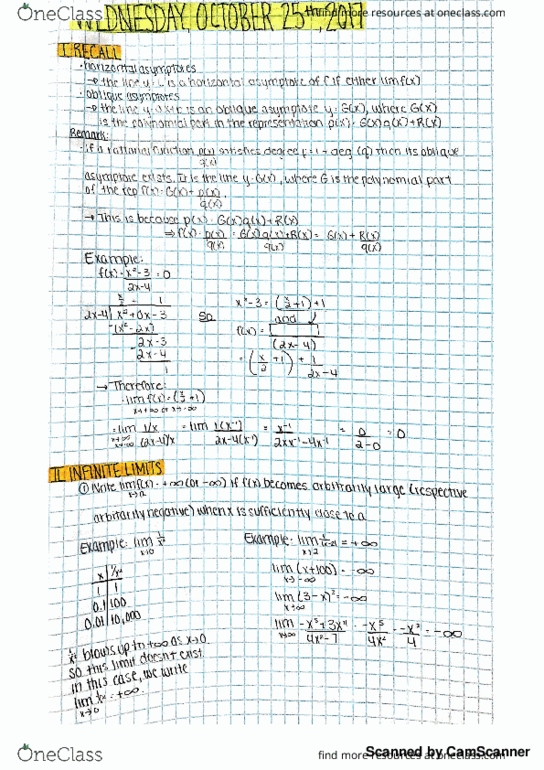 OneClass
find more resources at oneclass.com
WEDNESDAY, OCTOBER 25th, 2017
I. RECALL
· horizontal asymptotes
→ the line y = L is a horizontal asymptote of f if either lim f(x)
· oblique asymptotes
is an oblique asymptote y = G(x), where G(x)
is the polynomial part in the representation p(x) = G(x)q(x)+R(x)
Remark:
· if a rational function p(x)/q(x) satisfies degree p = 1 + deg (q) then its oblique
asymptote exists. It is the line y = G(x), where G is the polynomial part
of the rep f(x) = G(x) + p(x)/q(x).
→ This is because p(x) = G(x)q(x)+R(x)
⇒ f(x) = p(x)/q(x) = G(x)q(x)+R(x)/q(x) = G(x) + R(x)/q(x)
Example:
f(x) = x²-3/2x-4 = 0
x/2 - 1
2x-4 | x²+0x-3
-(x²-2x)
2x-3
- 2x-4
1
SO
x²-3 = (x/2+1)+1
and
f(x) =
(2x-4)
= (x/2+1) + 1/2x-4
→ Therefore:
· lim f(x) = (x/2+1)
x→+∞ or x→-∞
= lim 1/x / (2x-4)/x = lim 1(x⁻¹) / 2x-4(x⁻¹) = x⁻¹ / 2xx⁻¹-4x⁻¹ = 0/2-0 = 0
II. INFINITE LIMITS
① Write lim f(x) = +∞ (or -∞) if f(x) becomes arbitrarily large (respective
x→a
arbitrarily negative) when x is sufficiently close to a
Example: lim 1/x²
x→0
x | 1/x²
1 | 1
0.1 | 100
0.01 | 10,000
1/x² blows up to +∞ as x→0.
so this limit doesn't exist
in this case, we write
lim 1/x² = +∞.
x→0
Example: lim = +∞
x→2
lim (x+100) = -∞
x→-∞
lim (3-x)³ = -∞
x→∞
lim -x⁵+3x⁴/4x²-7 = -x⁵/4x² = -x³/4 = -∞
x→∞
Scanned by CamScanner
OneClass
find more resources at oneclass.com